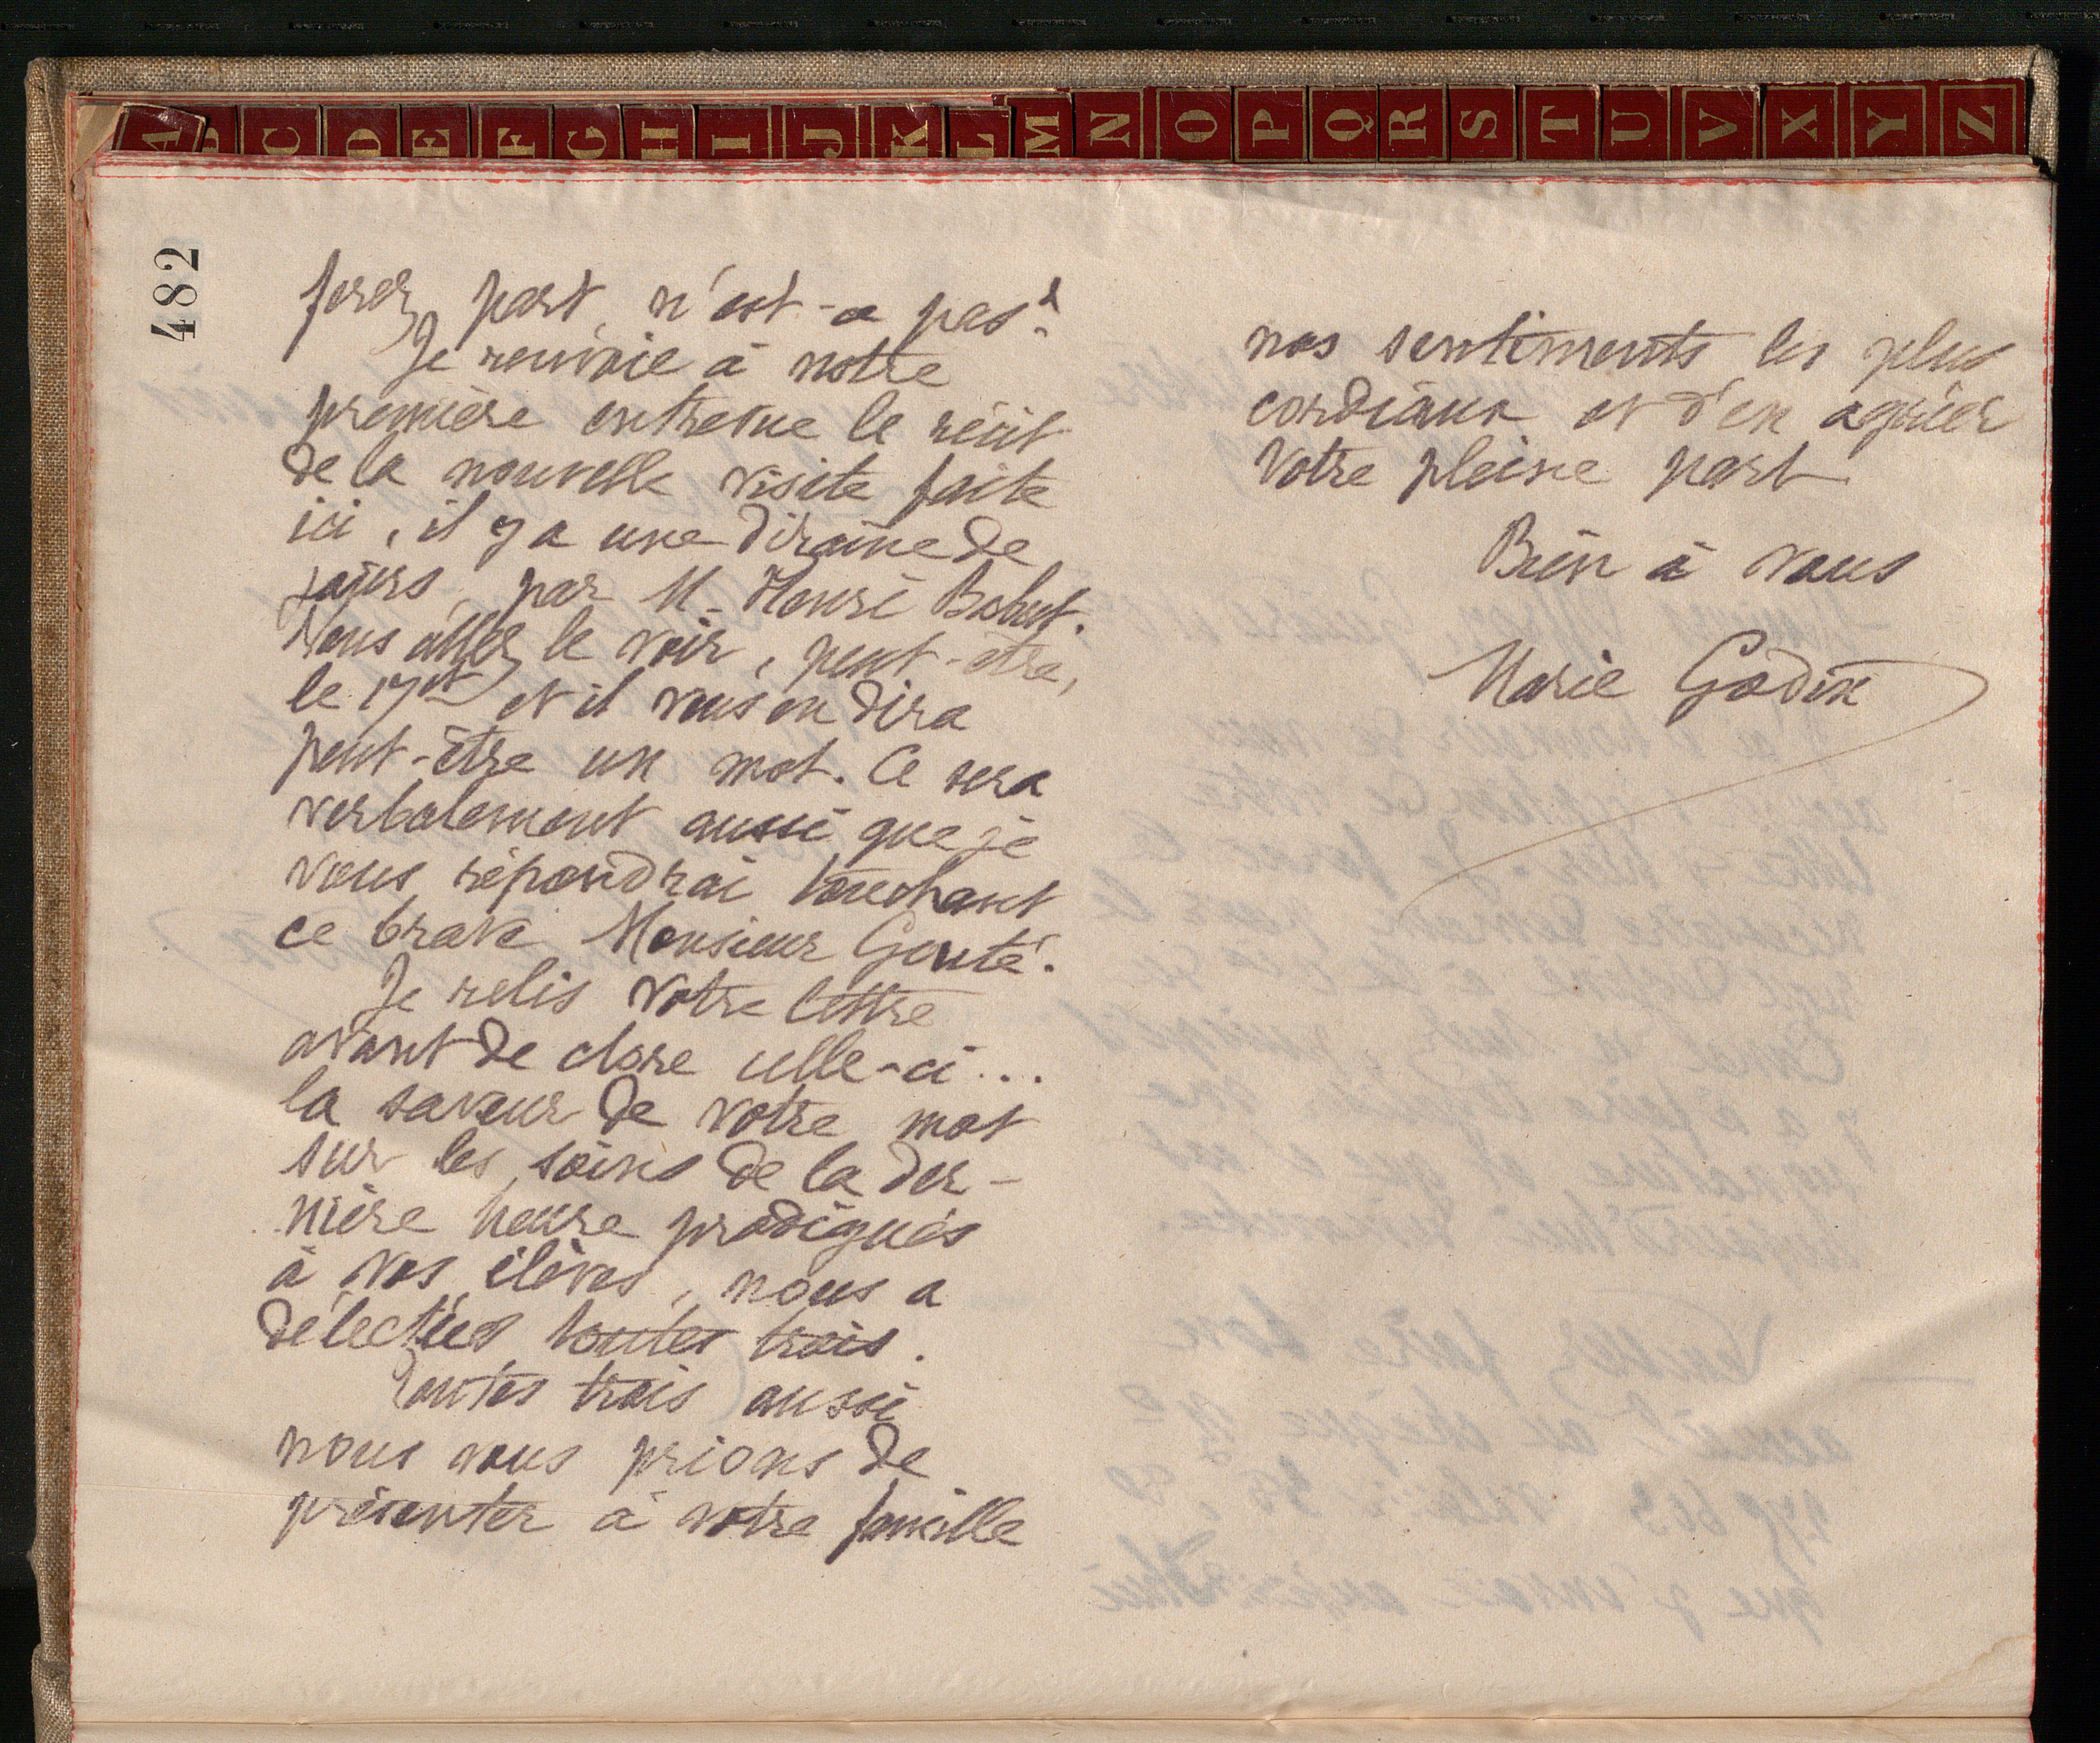 A B C D E F G H I J K L M N O P Q R S T U V X Y Z
482
ferez part, n'est-ce pas?
Je renvoie à notre
première entrevue le récit
de la nouvelle visite faite
ici, il y a une dizaine de
jours, par M. Henri Babut.
Vous allez le voir, peut-être,
le 17ct et il vous en dira
peut-être un mot. Ce sera
verbalement aussi que je
vous répondrai touchant
ce brave Monsieur Gouté.
Je relis votre lettre
avant de clore celle-ci...
la saveur de votre mot
sur les soins de la der-
nière heure prodigués
à vos élèves, nous a
délectées toutes trois.
Toutes trois aussi
nous vous prions de
présenter à votre famille
nos sentiments les plus
cordiaux et d'en agréer
votre pleine part
Bien à vous
Marie Godin